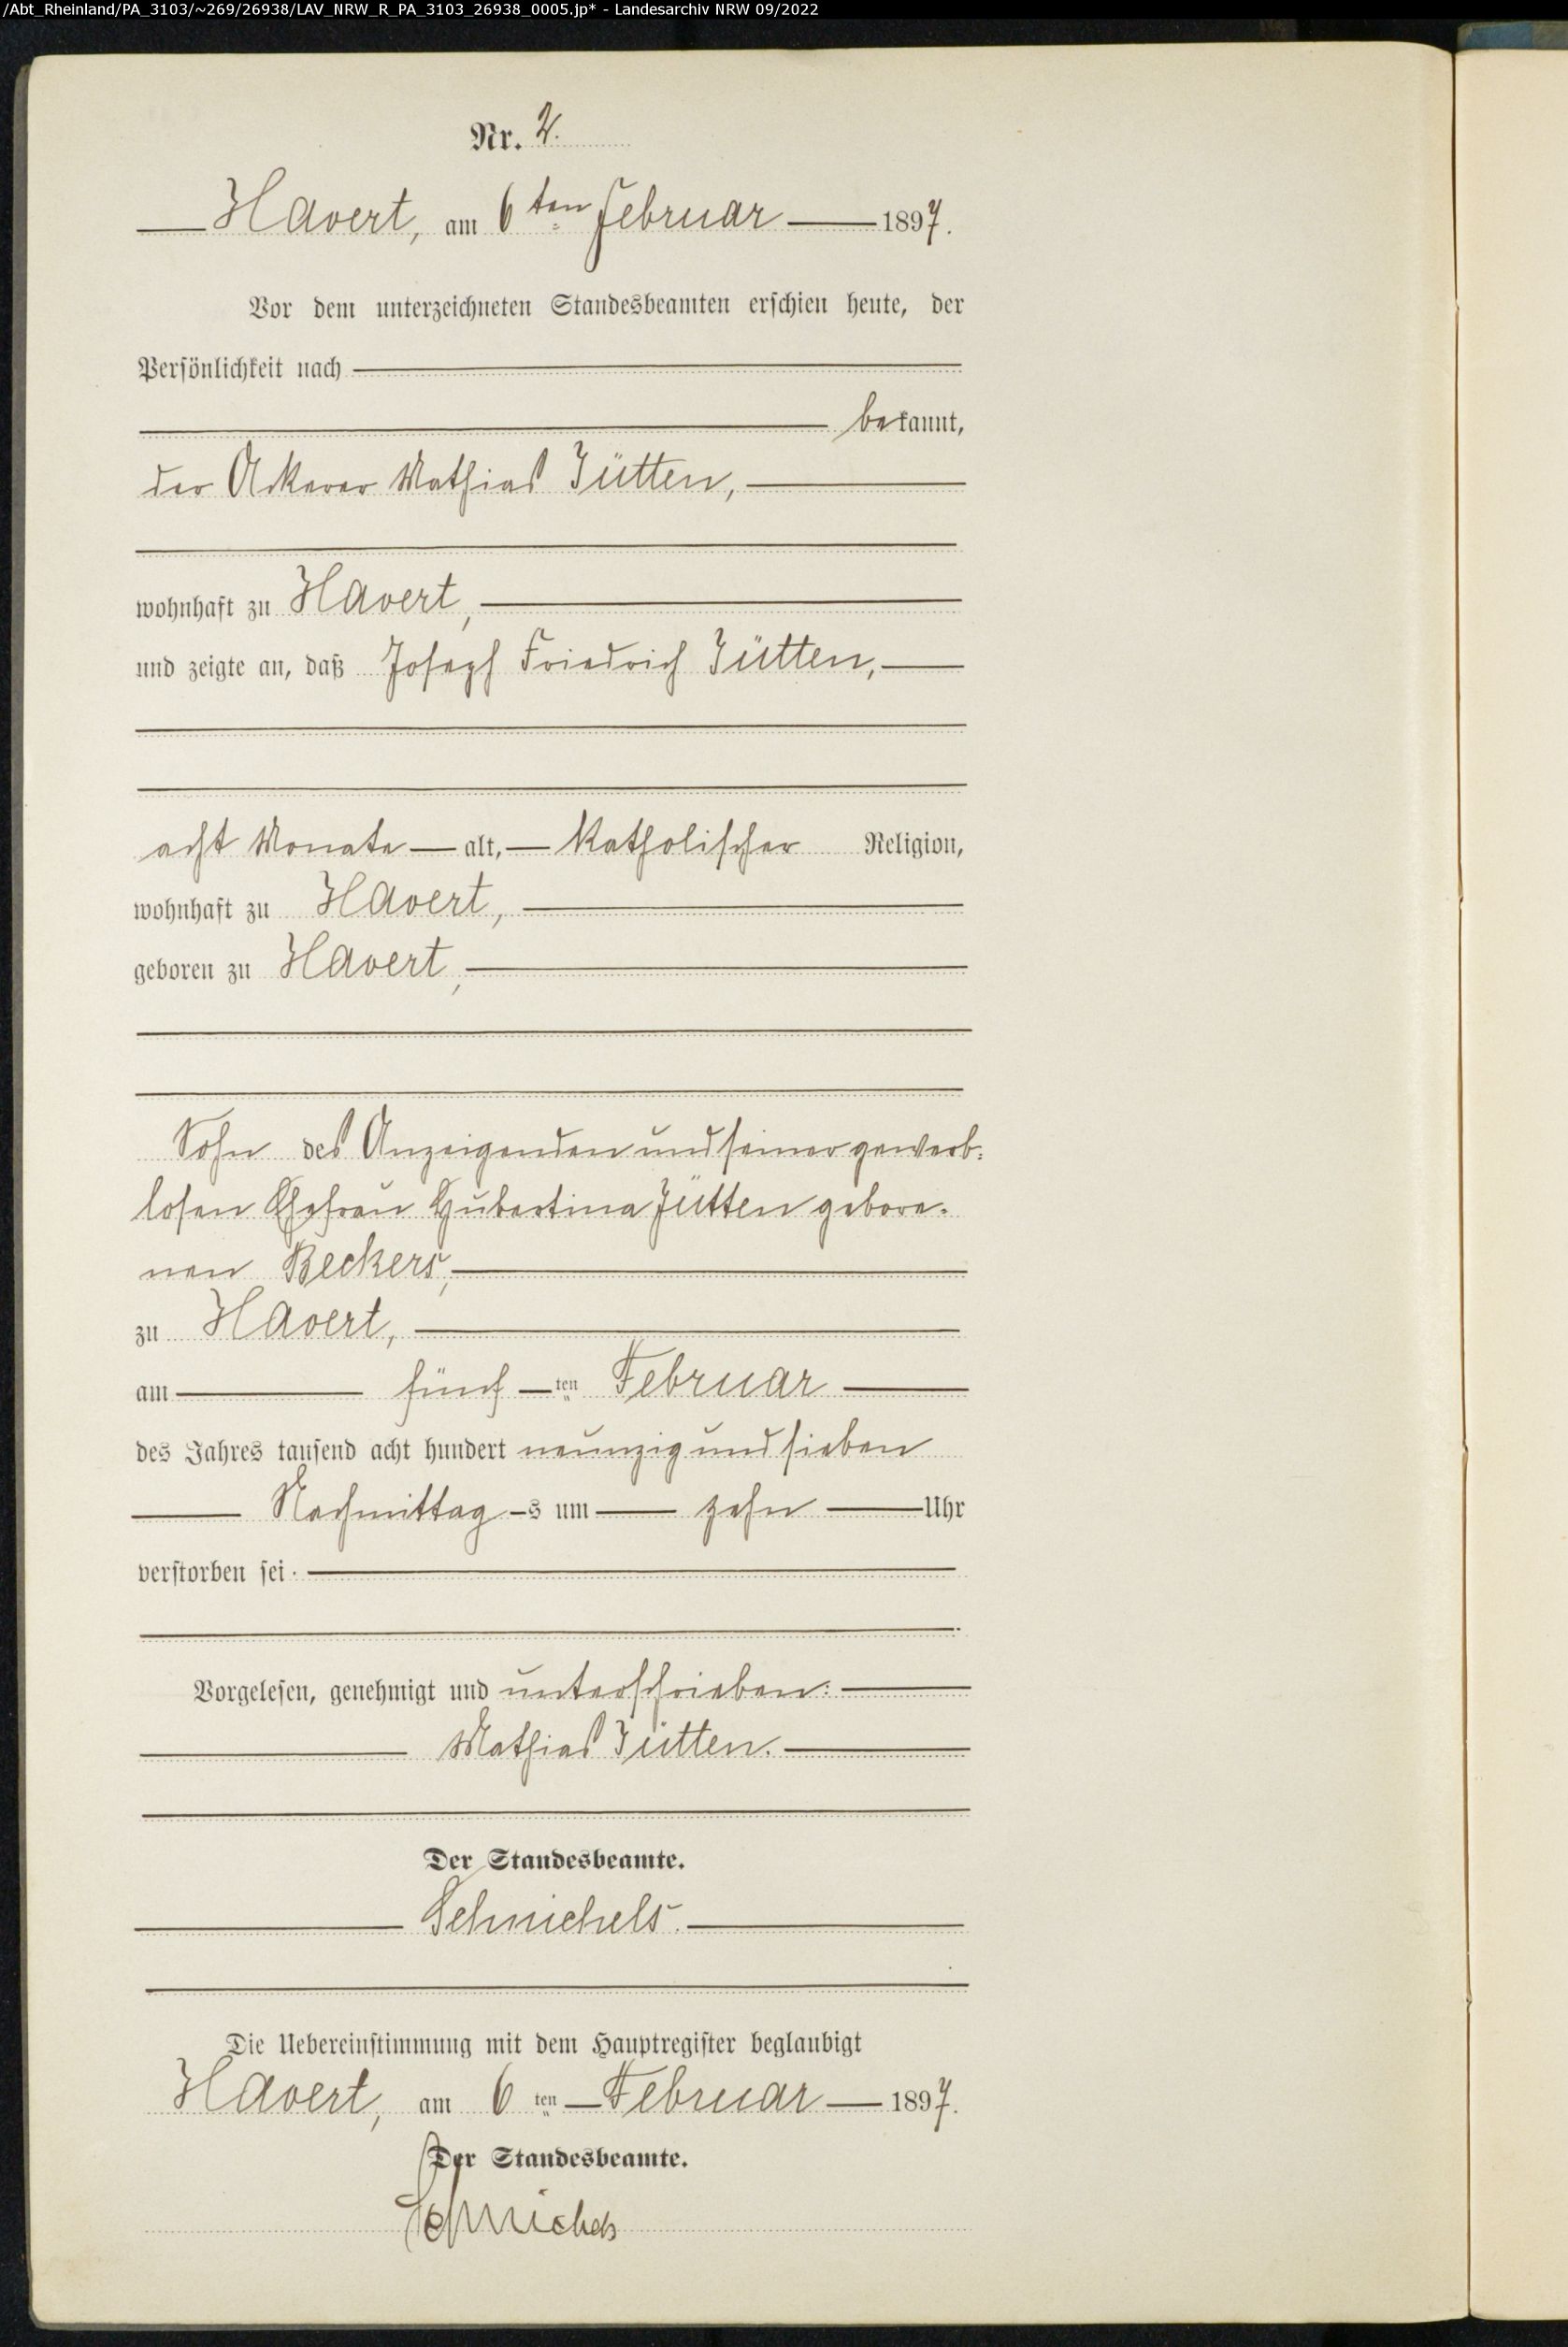 /Abt_Rheinland/PA_3103/~269/26938/LAV_NRW_R_PA_3103_26938_0005.jp* - Landesarchiv NRW 09/2022
Nr. 2.
Havert, am 6ten Februar 1897.
Vor dem unterzeichneten Standesbeamten erschien heute, der
Persönlichkeit nach
bekannt,
der Ackerer Mathias Jütten,
wohnhaft zu Havert,
und zeigte an, daß Joseph Friedrich Jütten,
acht Monate alt, katholischer Religion,
wohnhaft zu Havert,
geboren zu Havert,
Sohn des Anzeigenden und seiner gewerb-
losen Ehefrau Hubertina Jütten gebore-
nen Beckers,
zu Havert,
am fünf ten Februar
des Jahres tausend acht hundert neunzig und sieben
Nachmittags um zehn Uhr
verstorben sei.
Vorgelesen, genehmigt und unterschrieben:
Mathias Jütten.
Der Standesbeamte.
Schmichels.
Die Uebereinstimmung mit dem Hauptregister beglaubigt
Havert, am 6 ten Februar 1897.
Der Standesbeamte.
Schmichels